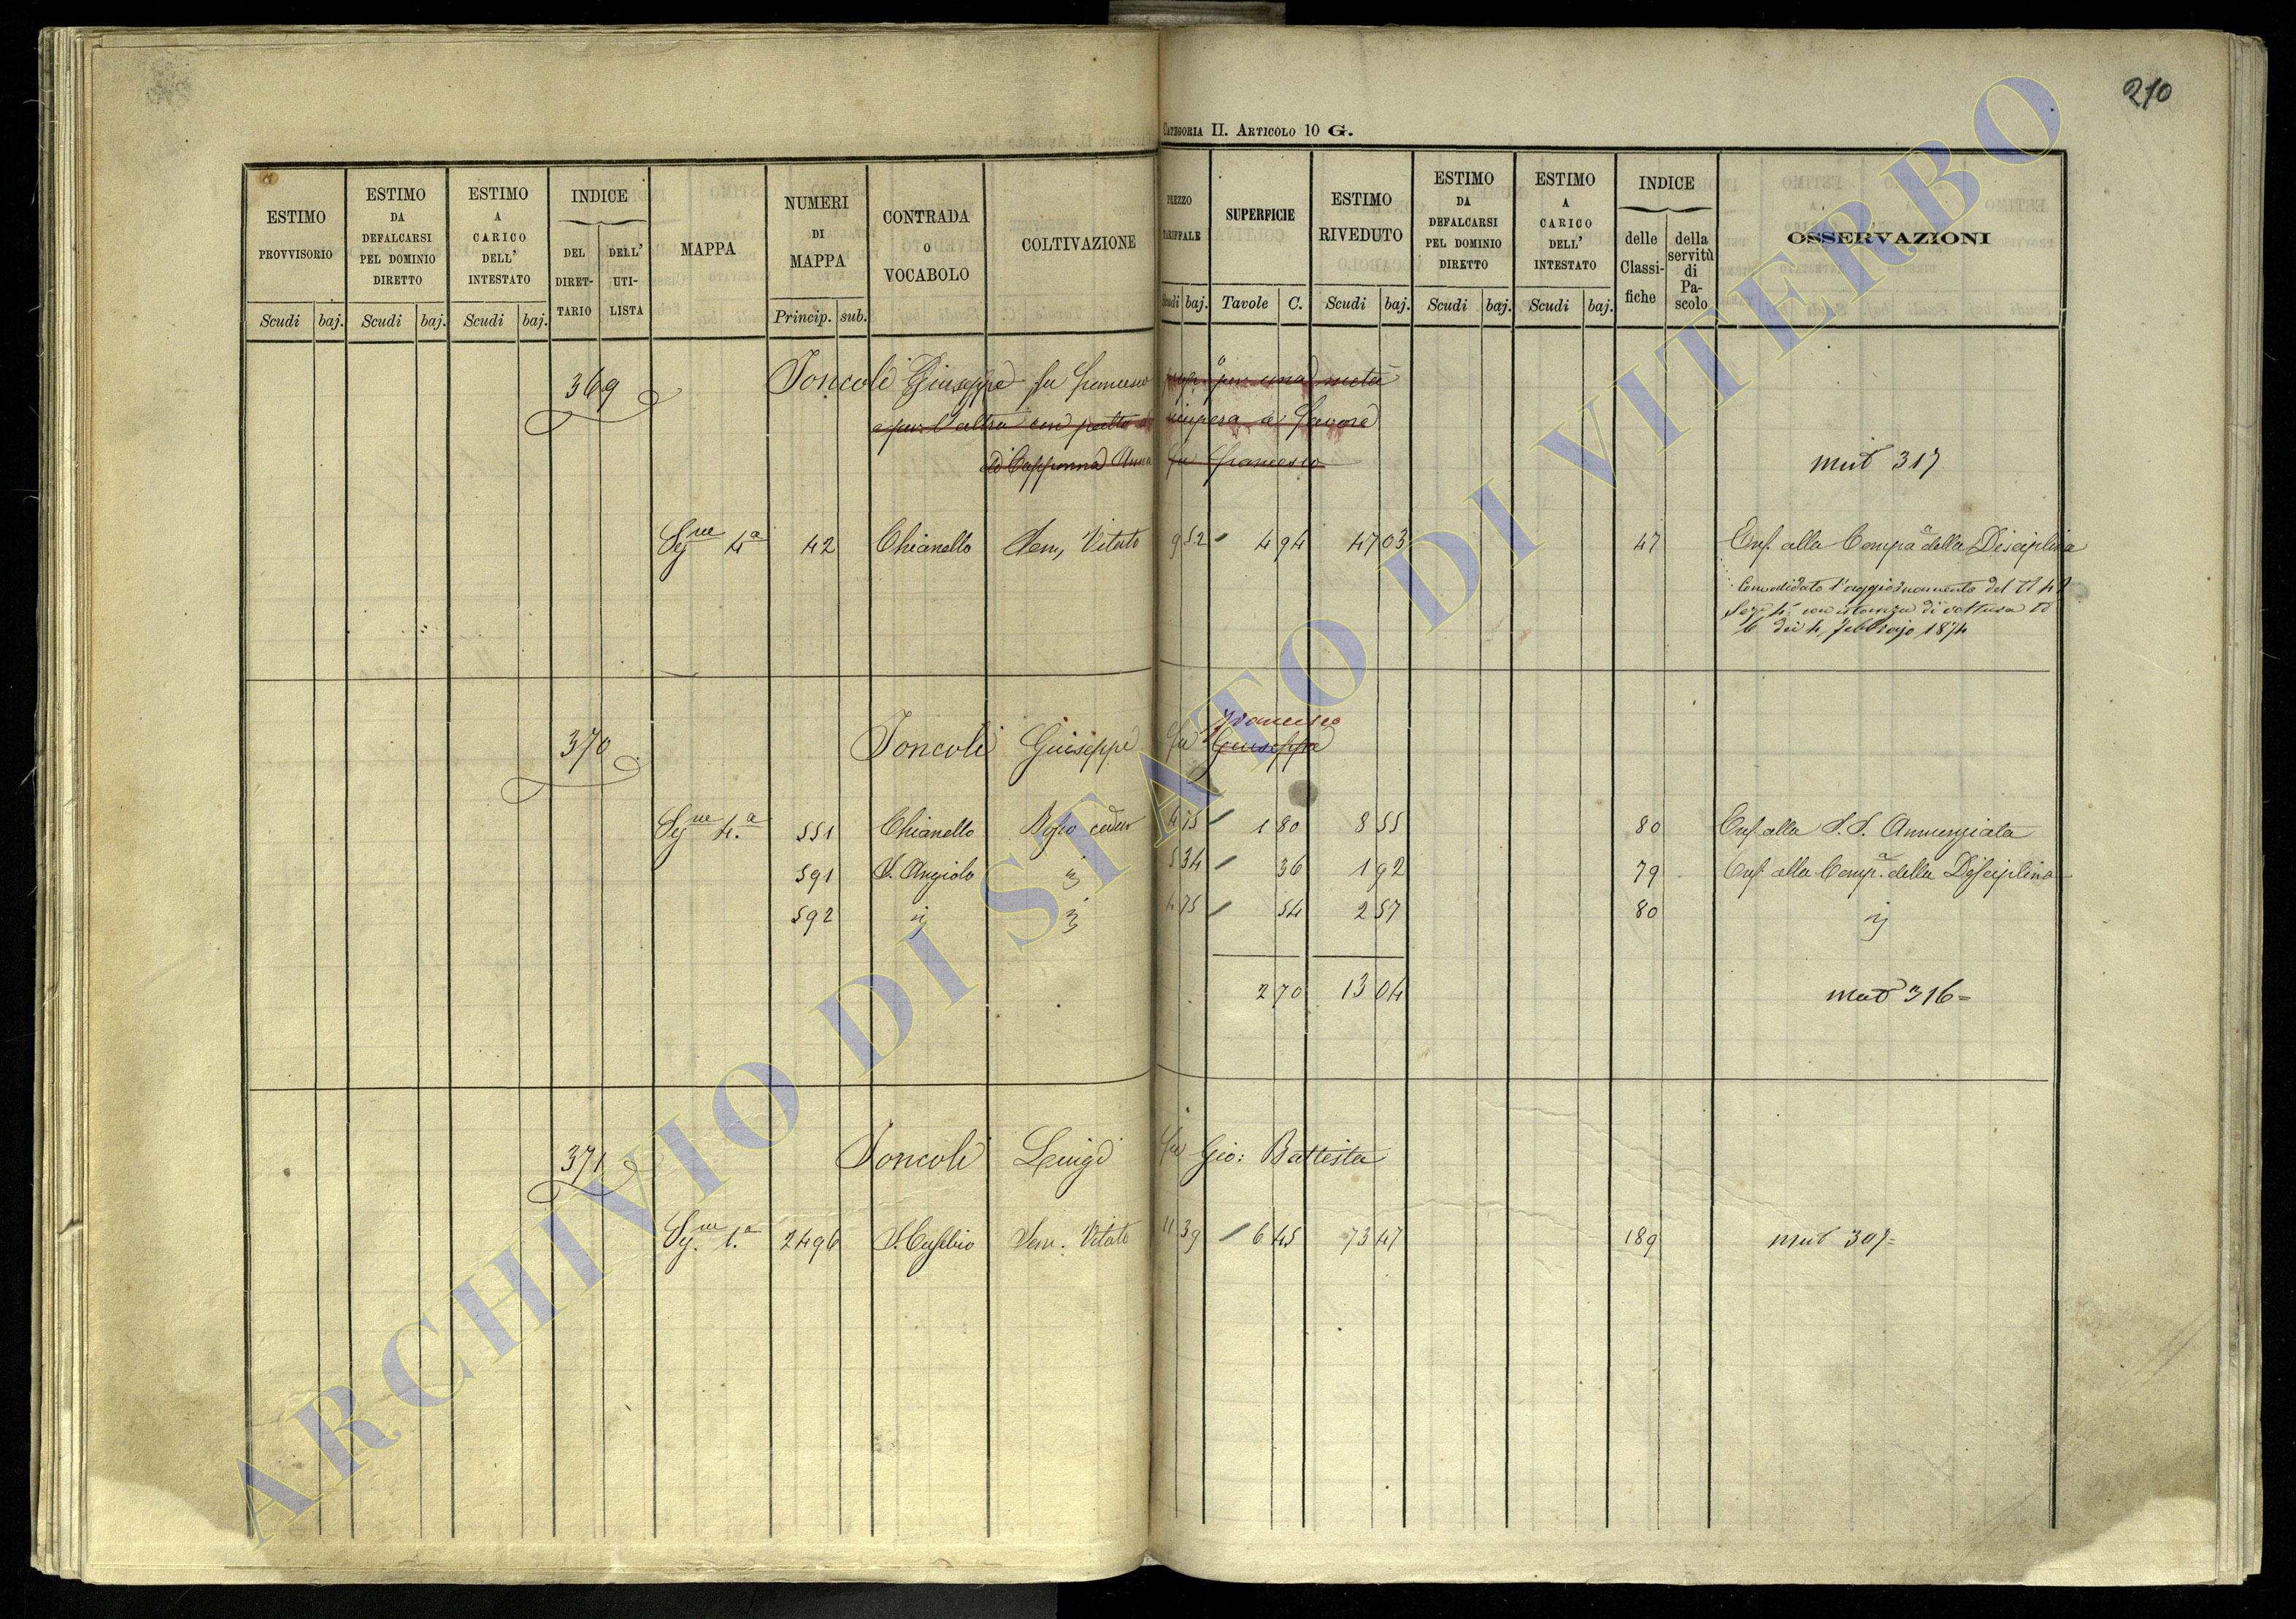 210
CATEGORIA II. ARTICOLO 10 G.
ESTIMO PROVVISORIO
ESTIMO DA DEFALCARSI PEL DOMINIO DIRETTO
ESTIMO A CARICO DELL' INTESTATO
INDICE
DEL DIRETTARIO
DELL' UTILISTA
MAPPA
NUMERI DI MAPPA
CONTRADA O VOCABOLO
COLTIVAZIONE
PREZZO TARIFFALE
SUPERFICIE
ESTIMO RIVEDUTO
ESTIMO DA DEFALCARSI PEL DOMINIO DIRETTO
ESTIMO A CARICO DELL' INTESTATO
INDICE
delle Classifiche
della servitù di Pascolo
OSSERVAZIONI
Scudi baj. Scudi baj. Scudi baj. Princip. sub. Scudi baj. Tavole C. Scudi baj. Scudi baj. Scudi baj.
369 Joncoli Giuseppe fu Francesco prop.o per una metà
e per l'altra con patto di ricupera a favore
di Capponna Anna fu Francesco
mut 317
Segne 4a 42 Chianello Sem, Vitato 9 52 4 94 47 03 47 Enf. alla Compa della Disciplina
Convalidato l'aggiornamento del N 42
Sez 4a con istanza di voltura N
6 dei 4 Febbrajo 1874
370 Joncoli Giuseppe fu Giuseppe Francesco
Segne 4.a 551 Chianello Bosco ceduo 4 75 1 80 8 55 80 Enf. alla S.S. Annunziata
591 S. Angiolo ij 5 34 36 1 92 79 Enf. alla Comp.a della Disciplina
592 ij ij 4 75 54 2 57 80 ij
2 70 13 04 mut 316=
371 Joncoli Luigi fu Gio: Battista
Segne. 1.a 2496 S. Eusebio Sem. Vitato 11 39 6 45 73 47 189 mut 307=
ARCHIVIO DI STATO DI VITERBO